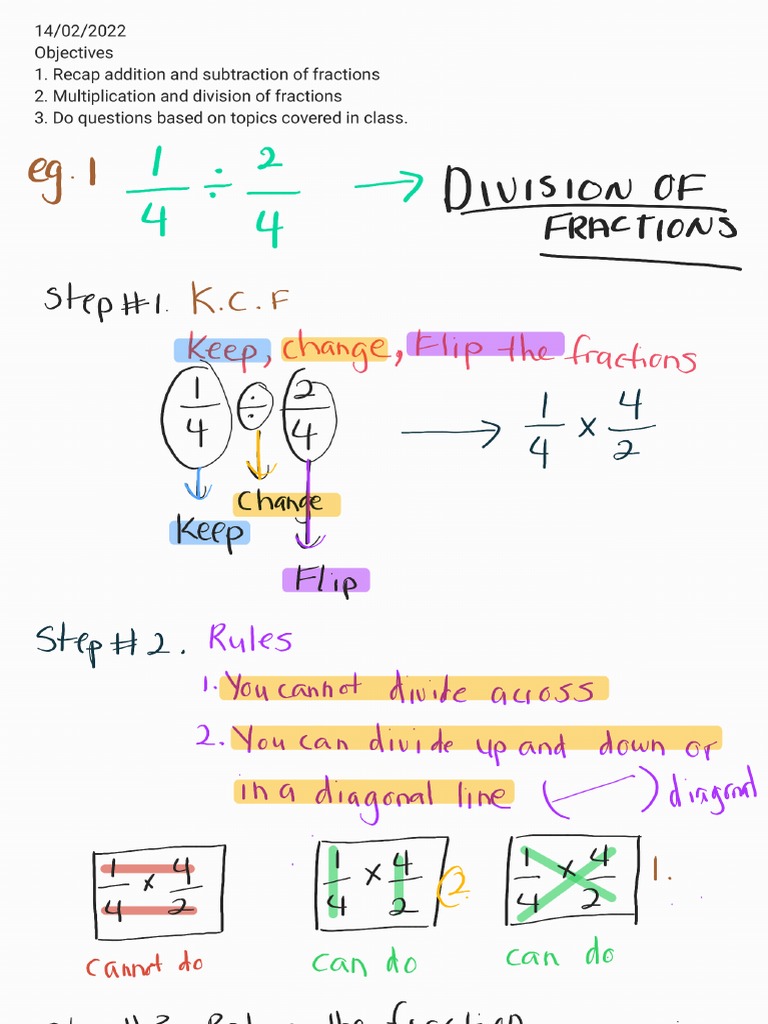 14/02/2022
Objectives
1. Recap addition and subtraction of fractions
2. Multiplication and division of fractions
3. Do questions based on topics covered in class.
eg. 1 1/4 ÷ 2/4 → DIVISION OF
FRACTIONS
Step #1. K.C.F
Keep, change, Flip the fractions
1/4 ÷ 2/4 → 1/4 × 4/2
Change
Keep
Flip
Step #2. Rules
1. You cannot divide across
2. You can divide up and down or
in a diagonal line ( ) diagonal
1/4 × 4/2 1/4 × 4/2 2. 1/4 × 4/2 1.
cannot do can do can do
the fraction